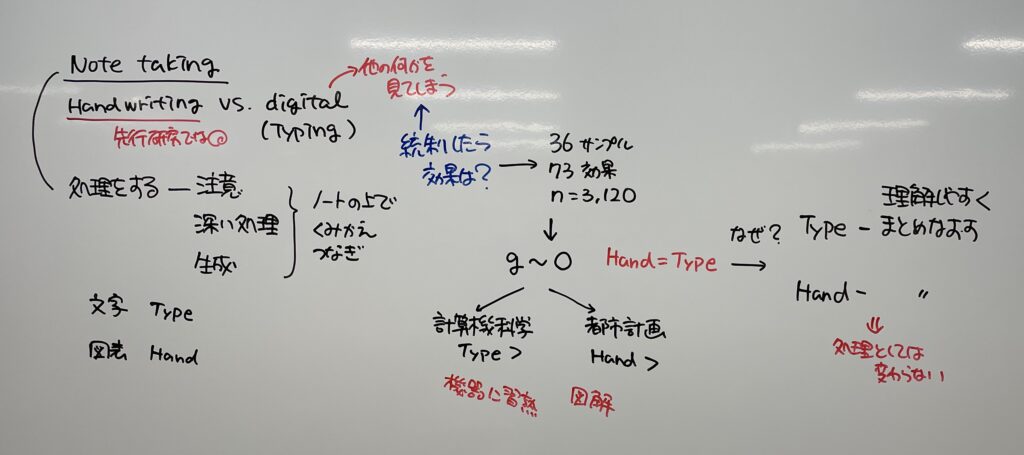 Note taking
Handwriting vs. digital
(Typing)
先行研究では◎
他の何かを
見てしまう
統制したら
効果は?
36 サンプル
73 効果
n=3,120
処理をする ー 注意
深い処理
生成
ノートの上で
くみかえ
つなぎ
g~0
Hand=Type
なぜ?
Type ー 理解しやすく
まとめなおす
Hand ー 〃
処理としては
変わらない
計算機科学
Type >
機器に習熟
都市計画
Hand >
図解
文字 Type
図表 Hand